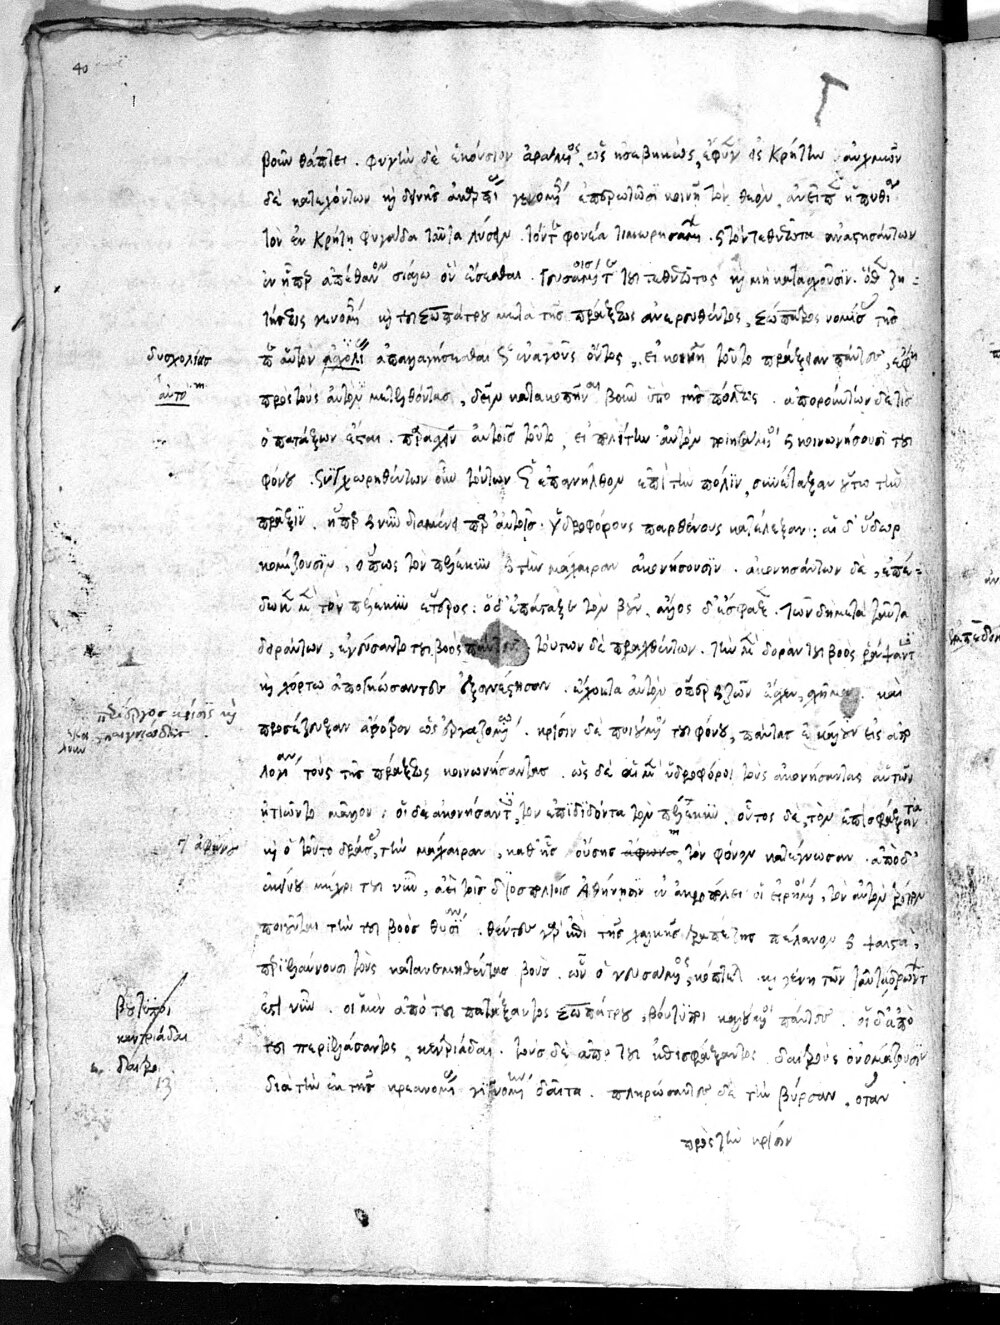 βοῦν θάπτει . φυγὴν δὲ ἑκούσιον ἀράμενος, ὡς ἠσεβηκὼς, ἔφυγεν εἰς Κρήτην αὐχμῶν
δὲ κατεχόντων καὶ δεινῆς ἀκαρπίας γενομένης ἐπερωτῶσι κοινῇ τὸν θεὸν, ἀνεῖπεν ἡ πυθία
τὸν ἐν Κρήτῃ φυγάδα ταῦτα λύσειν . τόντε φονέα τιμωρησαμένων καὶ τὸν τεθνεῶτα ἀναστησάντων
ἐν ᾗπερ ἀπέθανεν ἔσεσθαι . γευσαμένοις τε του τεθνεῶτος καὶ μὴ κατασχοῦσιν . ὅθεν ζη-
τήσεως γενομένης καὶ του Σωπάτρου μετὰ τῆς πράξεως ἀνευρεθέντος, Σώπατρος νομίσας τῆς
περὶ αὐτὸν ἀπαλλαγήσεσθαι ὡς ἐναγοῦς ὄντος, εἰ κοινῇ τοῦτο πράξειαν πάντες, ἔφη
πρὸς τοὺς αὐτὸν μετελθόντας, δεῖν κατακοπῆναι βοῦν ὑπὸ τῆς πόλεως . ἀπορούντων δὲ τίς
ὁ πατάξων ἔσται . παρασχεῖν αὐτοῖς τοῦτο, εἰ πολίτην αὐτὸν ποιησάμενοι κοινωνήσουσι του
φόνου . συγχωρηθέντων οὖν τούτων ὡς ἐπανῆλθον ἐπὶ τὴν πόλιν, συνέταξαν οὕτω τὴν
πρᾶξιν . ἥπερ καὶ νῦν διαμένει παρ' αὐτοῖς . ὑδροφόρους παρθένους κατέλεξαν : αἱ δ' ὕδωρ
κομίζουσιν, ὅπως τὸν πέλεκυν καὶ τὴν μάχαιραν ἀκονήσουσιν . ἀκονησάντων δὲ, ἐπέ-
δωκεν μὲν τὸν πέλεκυν ἕτερος : ὁ δ' ἐπάταξε τὸν βοῦν, ἄλλος δ' ἔσφαξεν . τῶν δὲ μετὰ ταῦτα
δειράντων, ἐγεύσαντο του βοὸς πάντες . τούτων δὲ πραχθέντων . τὴν μὲν δορὰν του βοὸς ῥάψαντες
καὶ χόρτῳ ἐπογκώσαντες ἐξανέστησαν . ἔχοντα αὐτὸν ὅπερ ζῶν ἔσχεν σχῆμα . καὶ
προσέζευξαν ἄροτρον ὡς ἐργαζομένῳ . κρίσιν δὲ ποιούμενοι του φόνου, πάντας ἐκάλουν εἰς ἀπο
λογίαν τοὺς τῆς πράξεως κοινωνήσαντας . ὡς δὲ αἱ μὲν ὑδροφόροι τοὺς ἀκονήσαντας αὐτῶν
ᾐτιῶντο μᾶλλον : οἱ δὲ ἀκονήσαντες, τὸν ἐπιδιδόντα τὸν πέλεκυν . οὗτος δὲ, τὸν ἐπισφάξαντα
καὶ ὁ τοῦτο δράσας, τὴν μάχαιραν, καθ' ἧς οὔσης ἀφώνου, τὸν φόνον κατέγνωσαν . ἀπὸ δ'
ἐκείνου μέχρι του νῦν, ἀεὶ τοῖς διϊοσπολίοις Ἀθήνησιν ἐν ἀκροπόλει οἱ εἰρημένοι, τὸν αὐτὸν τρόπον
ποιοῦνται τὴν του βοὸς θυσίαν . θέντες γὰρ ἐπὶ τῆς χαλκῆς τραπέζης πέλανον καὶ ψαιστὰ,
περιελαύνουσι τοὺς κατανεμηθέντας βοῦς . ὧν ὁ γευσάμενος, κόπτεται . καὶ γένη τῶν ταῦτα δρώντων
ἐστὶ νῦν . οἱ μὲν ἀπὸ του πατάξαντος Σωπάτρου, βουτύποι καλούμενοι πάντες . οἱ δ' ἀπὸ
του περιελάσαντος, κεντριάδαι . τοὺς δὲ ἀπὸ του ἐπισφάξαντος δαιτροὺς ὀνομάζουσιν
διὰ τὴν ἐκ τῆς κρεανομίας γιγνομένην δαῖτα . πληρώσαντες δὲ τὴν βύρσαν . ὅταν
πρὸς τὴν κρίσιν
40
δυσχολίας
αὐτο
ἀφώνου
βουτύποι
κεντριάδαι
δαιτροι
13